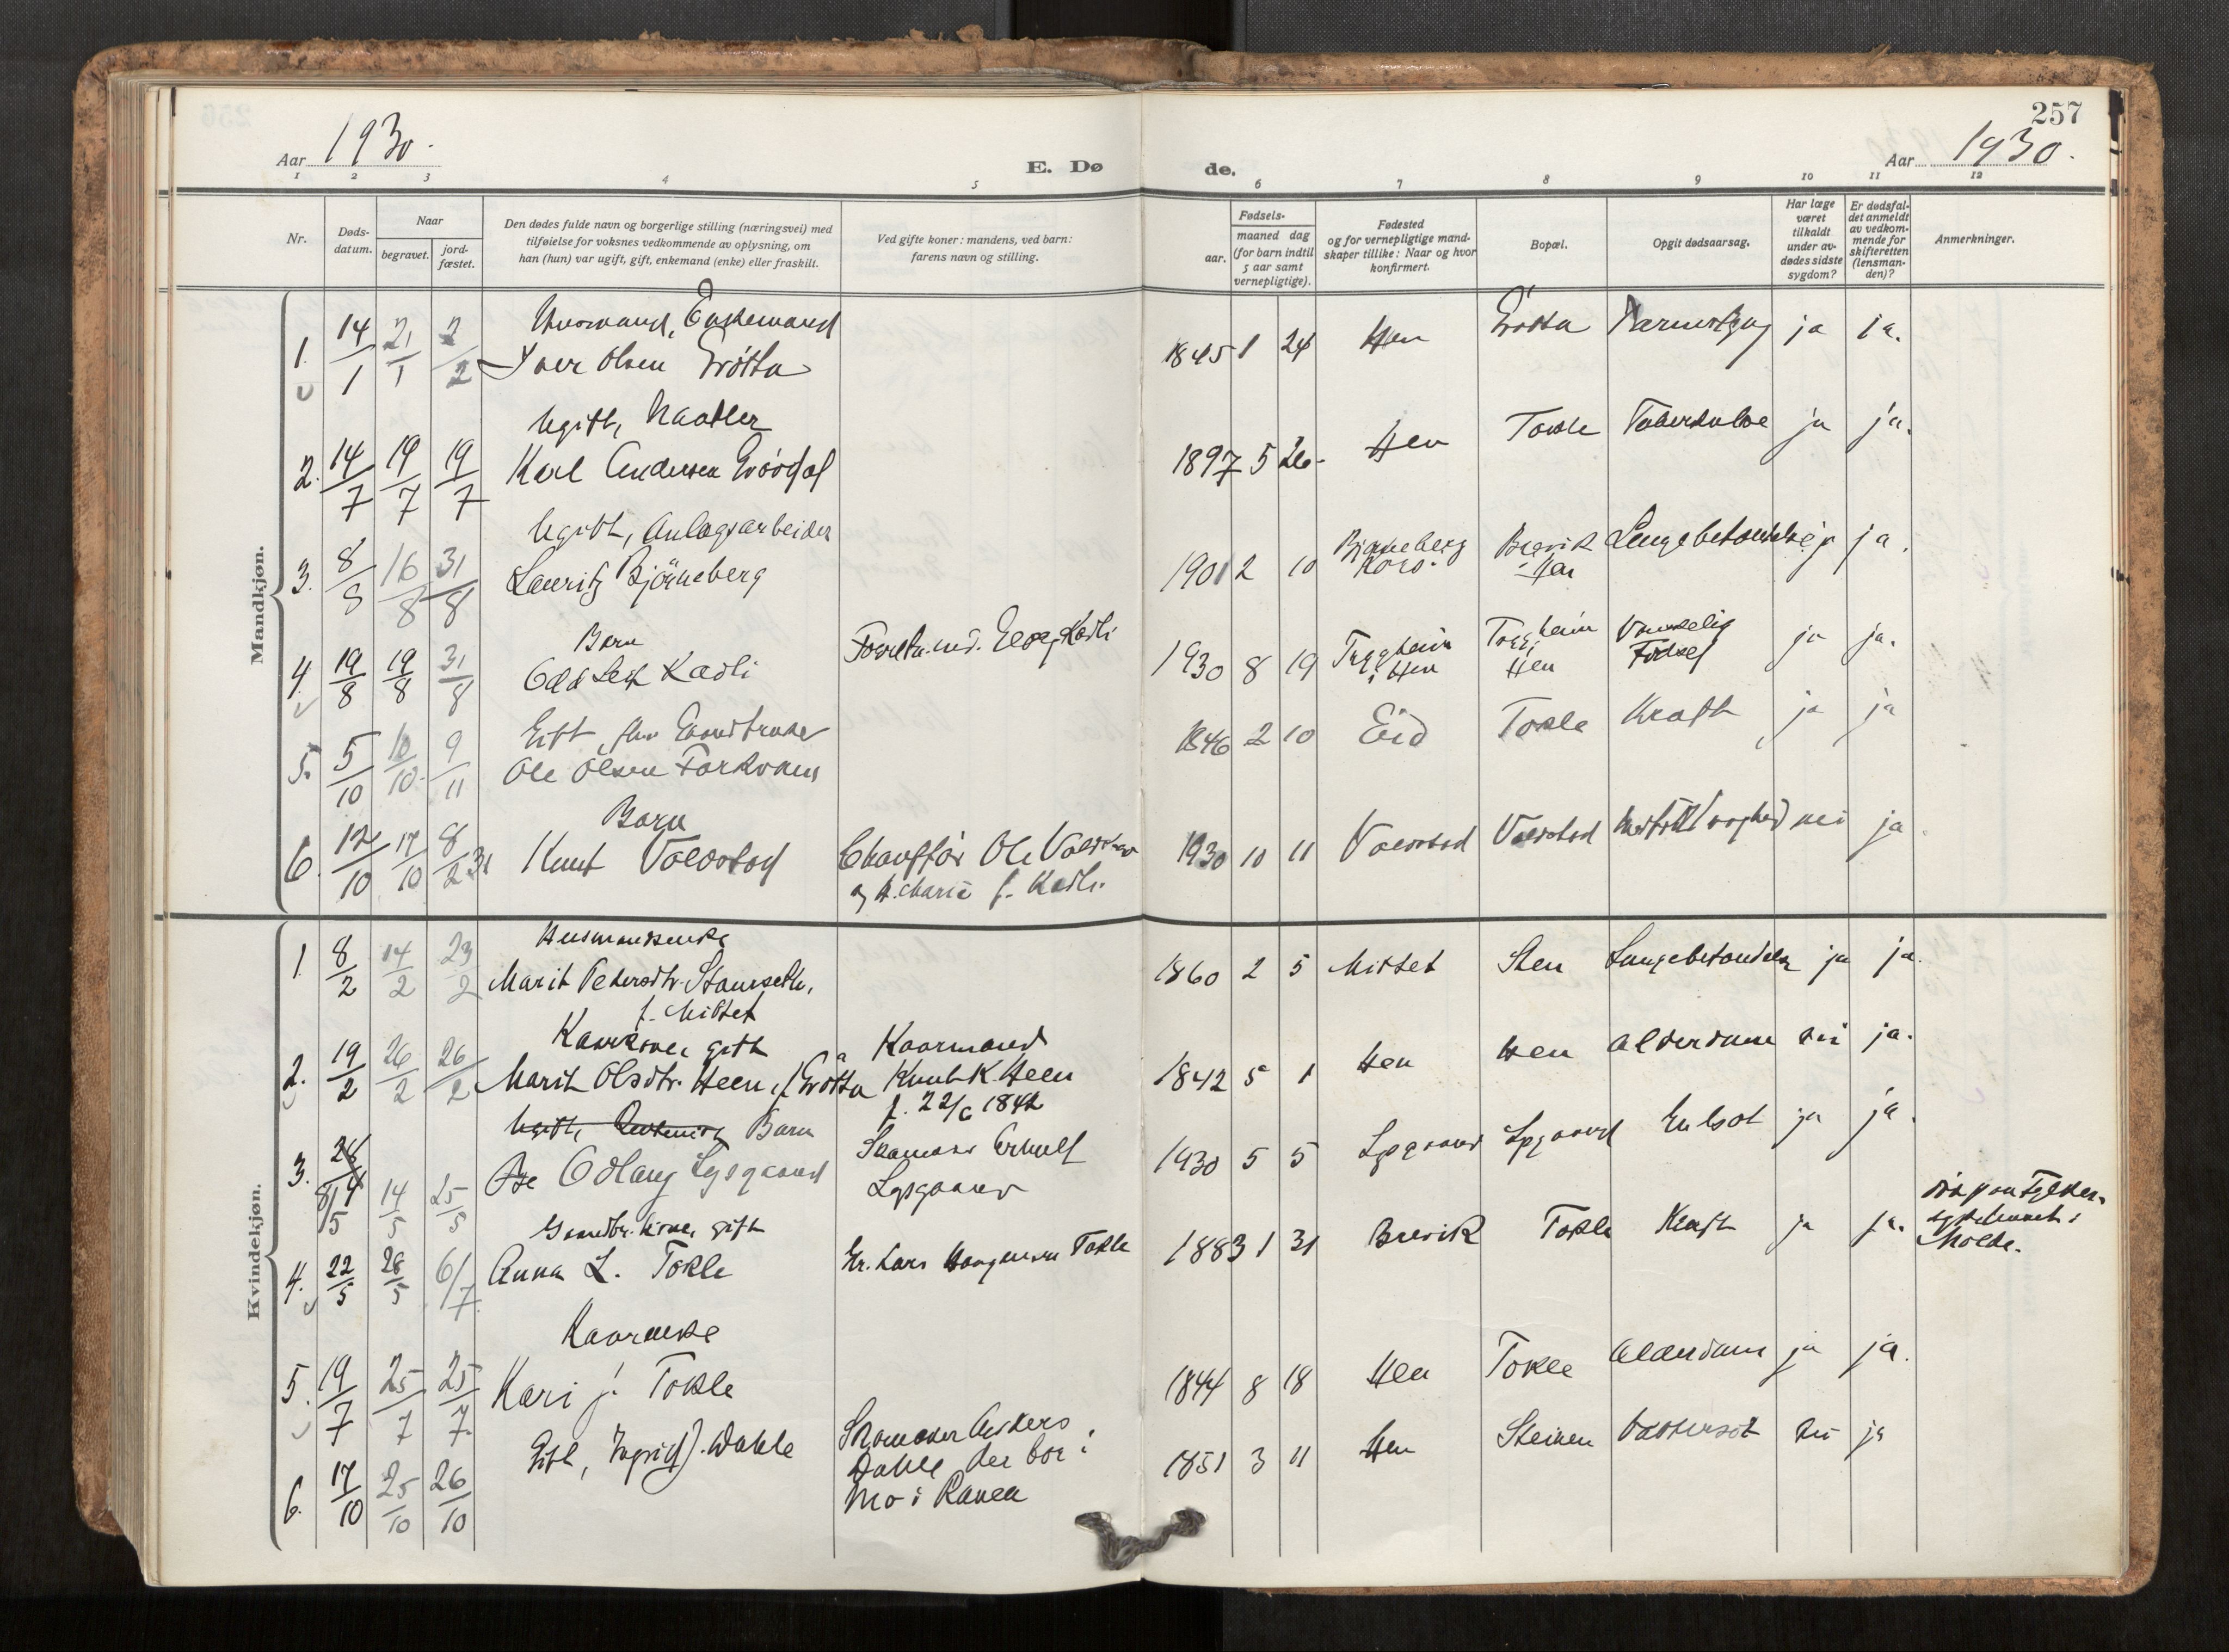 257
Aar 1930.
E. Dø
de.
Aar 1930.
1 2 3 4 5 6 7 8 9 10 11 12
Nr.
Døds-
datum.
Naar
begravet.
jord-
fæstet.
Den dødes fulde navn og borgerlige stilling (næringsvei) med
tilføielse for voksnes vedkommende av oplysning, om
han (hun) var ugift, gift, enkemand (enke) eller fraskilt.
Ved gifte koner: mandens, ved barn:
farens navn og stilling.
Fødsels-
aar.
maaned dag
(for barn indtil
5 aar samt
vernepligtige).
Fødested
og for vernepligtige mand-
skaper tillike: Naar og hvor
konfirmert.
Bopæl.
Opgit dødsaarsag.
Har læge
været
tilkaldt
under av-
dødes sidste
sygdom?
Er dødsfal-
det anmeldt
av vedkom-
mende for
skifteretten
(lensman-
den)?
Anmerkninger.
Mandkjøn.
Enkemand
1. 14/1 21/1 2/2 Iver Olsen Grötta 1845 1 24 Hen Grötta ja ja.
Ugift,
2. 14/7 19/7 19/7 Karl Andersen 1897 5 26 Hen Tokle Tuberkulose ja ja.
Ugift, Anlægsarbeider
3. 8/8 16/8 31/8 Lauritz Björneberg 1901 2 10 Bjørneberg Brevik Lungebetændelse ja ja.
Hen
Barn
4. 19/8 19/8 31/8 Odd Leif Kavli Georg Kavli 1930 8 19 Tryggheim Tryggheim Vanskelig ja ja.
i Hen Hen Fødsel
Gift, Gaardbruker
5. 5/10 10/10 9/11 Ole Olsen Torkvam 1846 2 10 Eid Tokle Kræft ja ja
Barn
6. 12/10 17/10 8/2 31 Knut Voldstad Chauffør Ole Voldstad 1930 10 11 Voldstad Voldstad nei ja
og h. Marie f. Kavli.
Kvindekjøn.
Husmandsenke
1 8/2 14/2 23/2 Marit Pedersdtr. Stavseth, 1860 2 5 Mittet Sten Lungebetændelse ja ja.
f. Mittet
Kaarkone, gift Kaarmand
2. 19/2 26/2 26/2 Marit Olsdtr. Heen, f. Grötta Knut K. Heen 1842 5 1 Hen Hen Alderdom nei ja.
f. 22/6 1842
Ugift, Barn Skomaker
3. 8/5 14/5 25/5 Odlaug Lysgaard Lysgaard 1930 5 5 Lysgaard Lysgaard ja ja.
Gaardbr. kone, gift
4. 22/5 28/5 6/7 Anna L. Tokle Gr. Lars Tokle 1883 1 31 Brevik Tokle Kræft ja ja.
Død paa Fylkes-
sykehuset i
Molde.
Kaarenke
5. 19/7 25/7 25/7 Kari J. Tokle 1844 8 18 Hen Tokle Alderdom ja ja.
6. 17/10 25/10 26/10 Gift, Ingrid J. Dahle Skomaker Anders 1851 3 11 Hen Steinen Vattersot nei ja
Dahle der bor i
Mo i Ranen